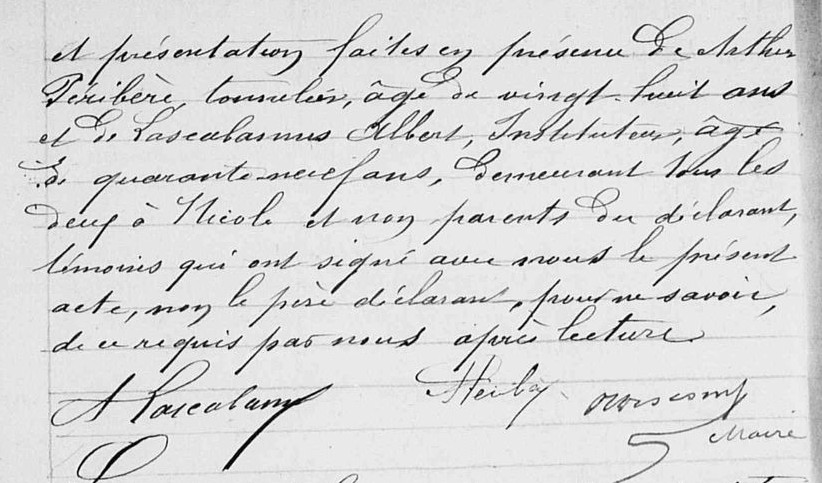 et présentation faites en présence de Arthur
Péribère, tonnelier, âgé de vingt-huit ans
et de Lascalasmus Albert, Instituteur, âgé
de quarante-neuf ans, demeurant tous les
deux à Nicole et non parents du déclarant,
témoins qui ont signé avec nous le présent
acte, non le père déclarant, pour ne savoir,
de ce requis par nous après lecture
Maire